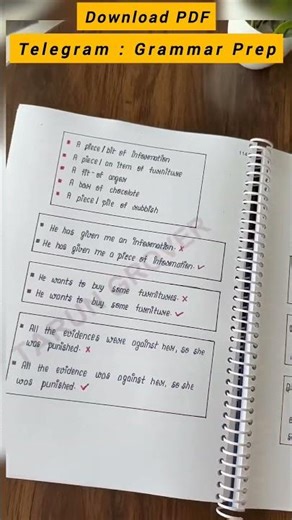 Download PDF
Telegram : Grammar Prep
A piece / bit of information
A piece / an item of furniture
A fit of anger
A box of chocolate
A piece / pile of rubbish
He has given me an information. ×
He has given me a piece of information. ✓
He wants to buy some furnitures. ×
He wants to buy some furniture. ✓
All the evidences were against her, so she
was punished. ×
All the evidence was against her, so she
was punished. ✓